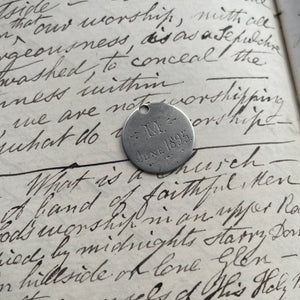 tside –
our worship, with all
rgeousness, is as a Sepulchre
washed, to conceal the
ness within –
we are not worshipping
what do
worship –
June 1895
What is a church –
of band of faithful Men
God's worship man upper Ro
by midnights starry Dom
n hillside or lone Glen –
of His Holy